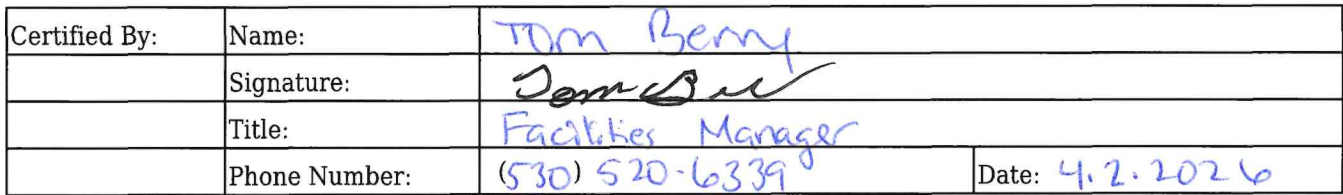 Certified By: Name: Tom Berry
Signature: Tom Be
Title: Facilities Manager
Phone Number: (530) 520-6339 Date: 4.2.2026